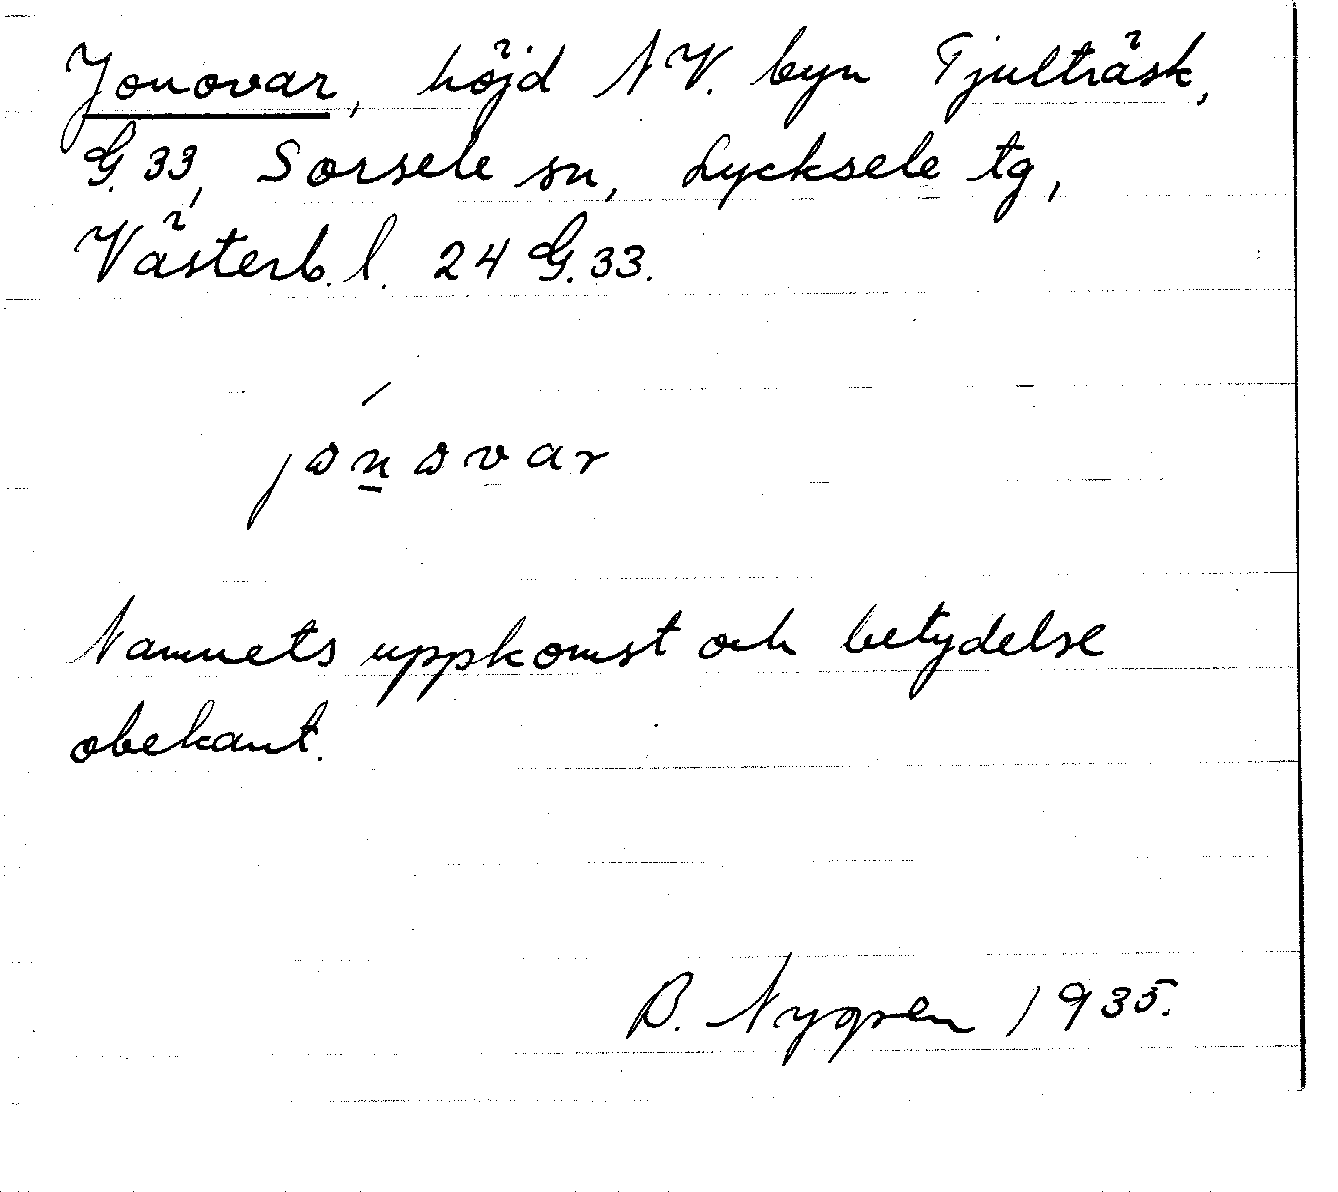 Jonovar, höjd NV. byn Tjulträsk,
G.33, Sorsele sn, Lycksele tg,
Västerb. l. 24 G.33.
jónovar
Namnets uppkomst och betydelse
obekant.
B. Nygren 1935.